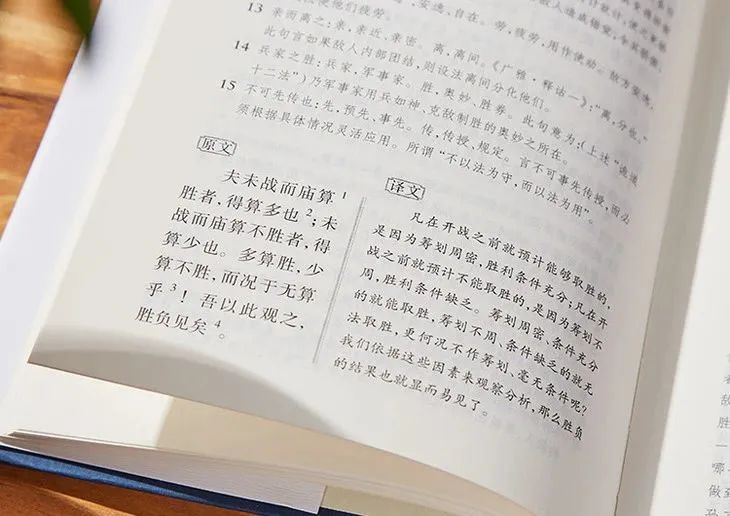 使他们疲劳。
13 亲而离之:亲,亲近、亲密。离,离间。《广雅·释诂一》:“离,分也。”
此句言如果敌人内部团结,则设法离间分化他们。
14 兵家之胜:兵家,军事家。胜,奥妙、胜券。此句意为:(上述“诡道
十二法”)乃军事家用兵如神、克敌制胜的奥妙之所在。
15 不可先传也:先,预先、事先。传,传授、规定。言不可事先传授,而必
须根据具体情况灵活应用。所谓“不以法为守,而以法为用”。
原文
夫未战而庙算1
胜者,得算多也2;未
战而庙算不胜者,得
算少也。多算胜,少
算不胜,而况于无算
乎3!吾以此观之,
胜负见矣4。
译文
凡在开战之前就预计能够取胜的,
是因为筹划周密,胜利条件充分;凡在开
战之前就预计不能取胜的,是因为筹划不
周,胜利条件缺乏。筹划周密、条件充分
的就能取胜,筹划不周、条件缺乏的就无
法取胜,更何况不作筹划、毫无条件呢?
我们依据这些因素来观察分析,那么胜负
的结果也就显而易见了。
敌
胜
一
哪
做到